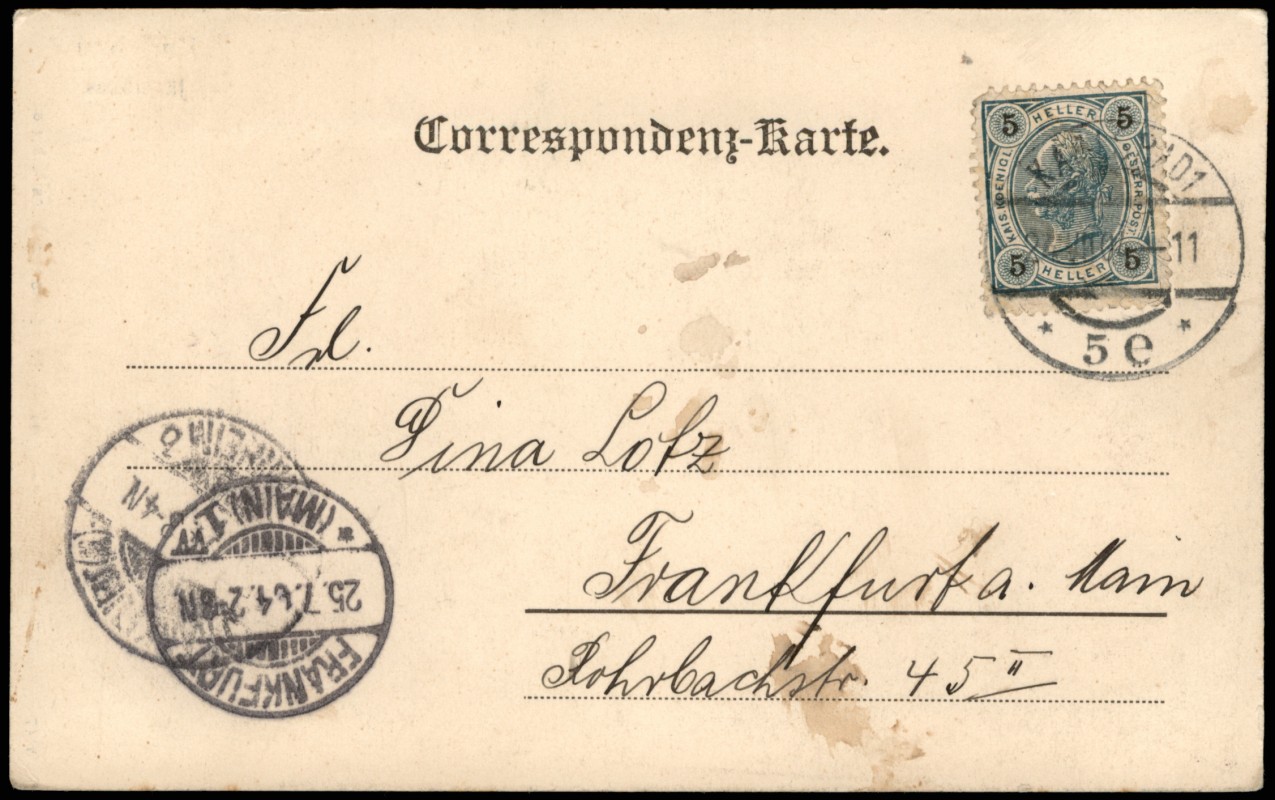 Correspondenz-Karte.
5 HELLER 5
KAIS. KOENIGL. OESTERR. POST
5 HELLER 5
11
5 e
Frl.
Tina Lotz
Frankfurt a. Main
Rohrbachstr. 45 II
(MAIN) 1
25.7.04. 2-3N
FRANKFURT
4N